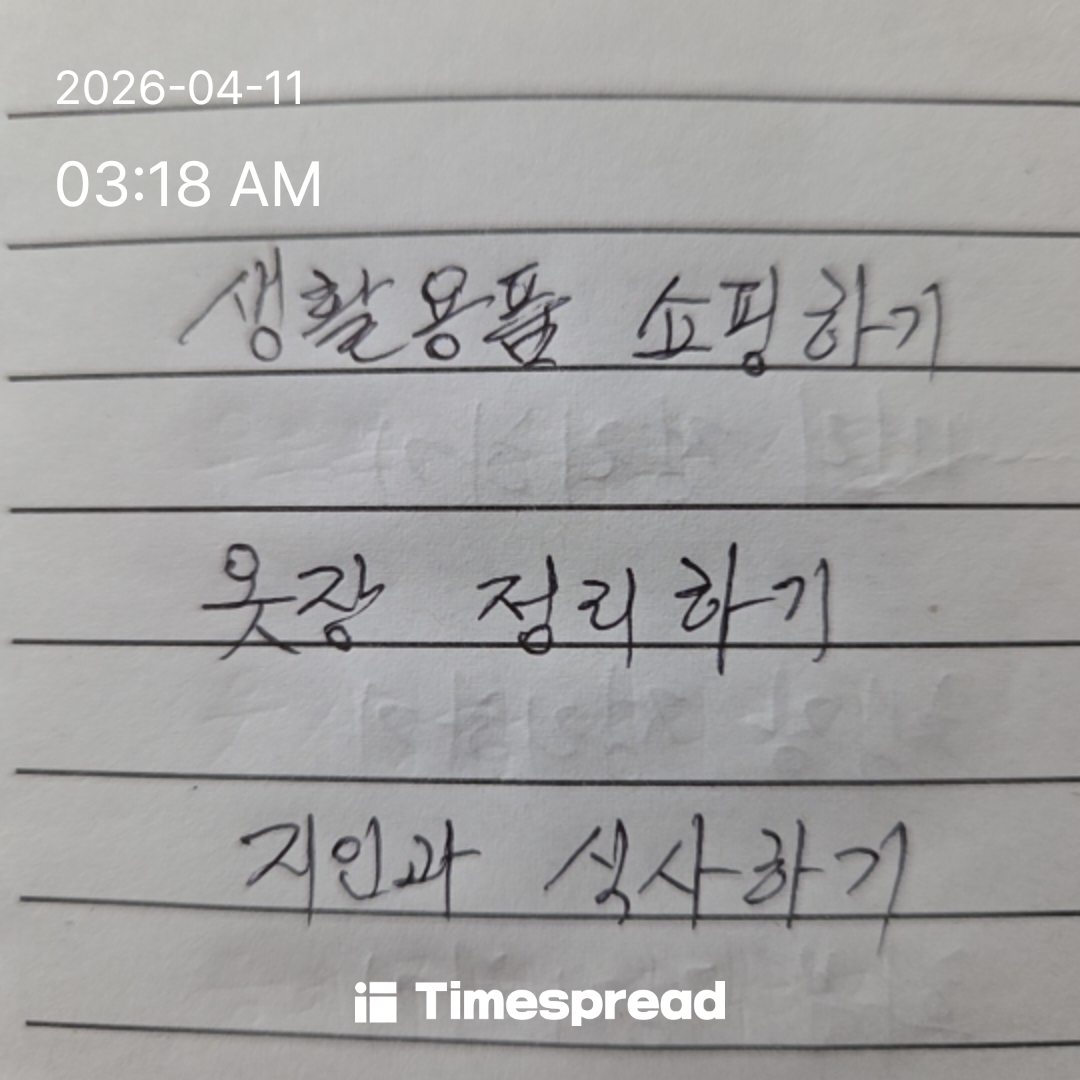 2026-04-11
03:18 AM
생활용품 쇼핑하기
옷장 정리하기
지인과 식사하기
Timespread